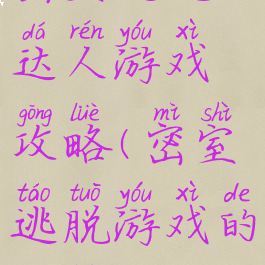 dá rén yóu xì
达人游戏
gōng lüè mì shì
攻略(密室
táo tuō yóu xì de
逃脱游戏的